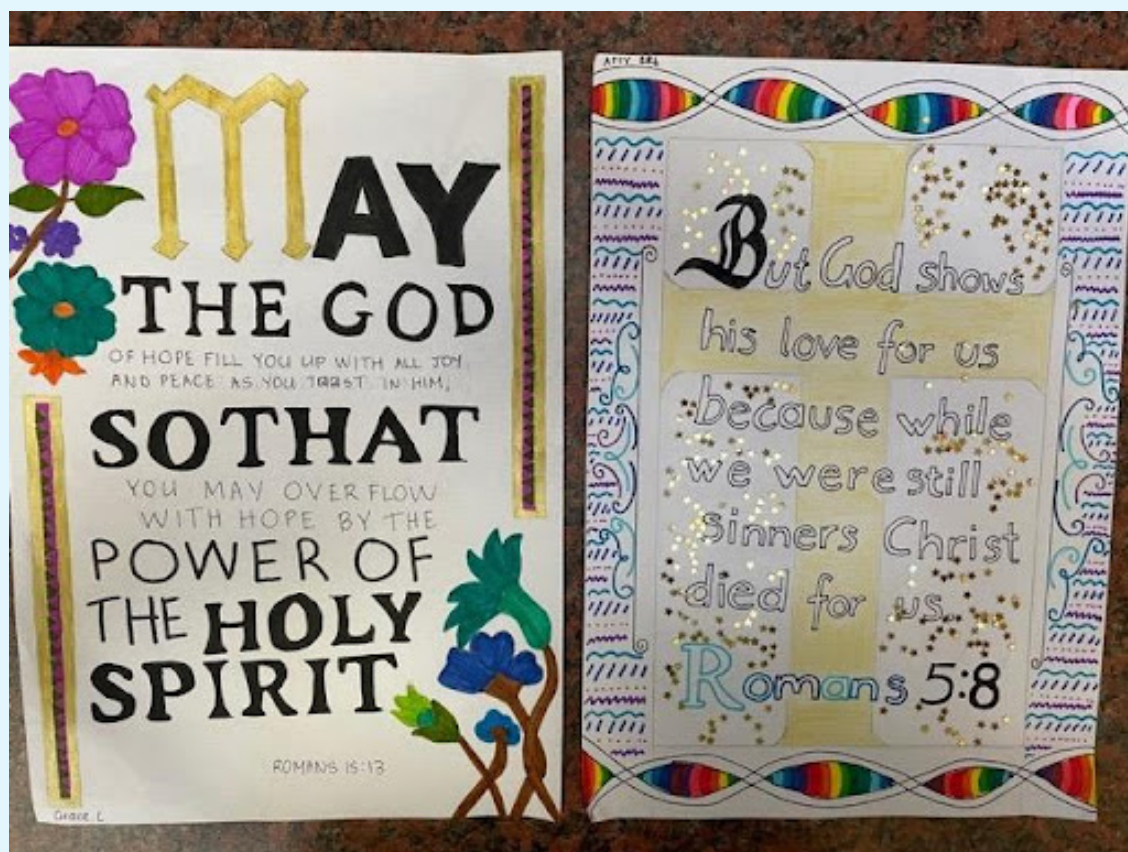 MAY
THE GOD
OF HOPE FILL YOU UP WITH ALL JOY
AND PEACE AS YOU IN HIM,
SO THAT
YOU MAY OVERFLOW
WITH HOPE BY THE
POWER OF
THE HOLY
SPIRIT
ROMANS 15:13
Grace L
But God shows
his love for us
because while
we were still
sinners Christ
died for us.
Romans 5:8